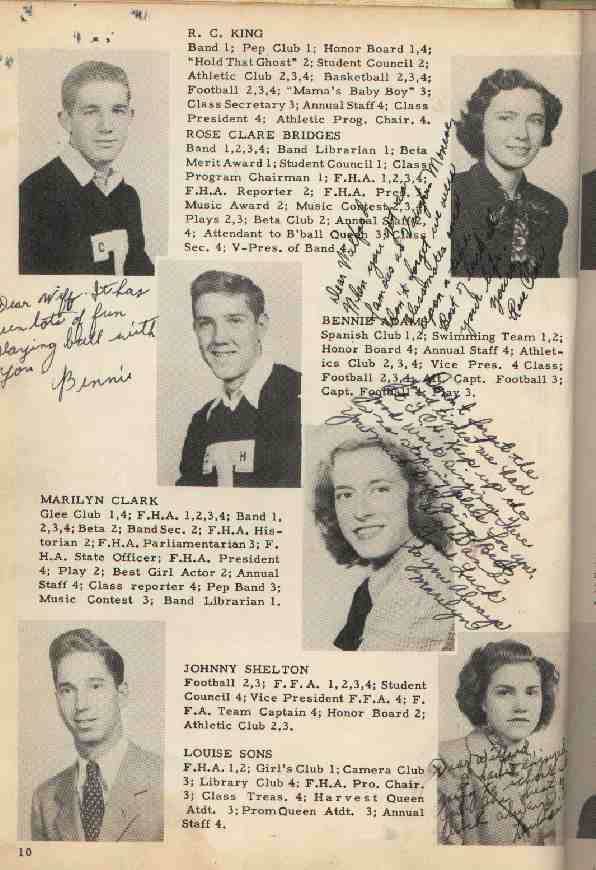 R. C. KING
Band 1; Pep Club 1; Honor Board 1,4;
"Hold That Ghost" 2; Student Council 2;
Athletic Club 2,3,4; Basketball 2,3,4;
Football 2,3,4; "Mama's Baby Boy" 3;
Class Secretary 3; Annual Staff 4; Class
President 4; Athletic Prog. Chair. 4.
ROSE CLARE BRIDGES
Band 1,2,3,4; Band Librarian 1; Beta
Merit Award 1; Student Council 1; Class
Program Chairman 1; F.H.A. 1,2,3,4;
F.H.A. Reporter 2; F.H.A.
Music Award 2; Music Contest 2,3,4;
Plays 2,3; Beta Club 2; Annual Staff
4; Attendant to B'ball Queen 3; Class
Sec. 4; V-Pres. of Band
C
Dear
When you
famous
don't forget we were
classmates and
Best of
Rose Clare
Dear Wiff. It has
been lots of fun
playing ball with
you
Bennie
T H
BENNIE ADAMS
Spanish Club 1,2; Swimming Team 1,2;
Honor Board 4; Annual Staff 4; Athlet-
ics Club 2, 3, 4; Vice Pres. 4 Class;
Football 2,3,4; Capt. Football 3;
Capt. Football 4; Play 3.
forget the
we had
Keep up
good work
place for you
Luck
to you Always
Marilyn
MARILYN CLARK
Glee Club 1,4; F.H.A. 1,2,3,4; Band 1,
2,3,4; Beta 2; Band Sec. 2; F.H.A. His-
torian 2; F.H.A. Parliamentarian 3; F.
H.A. State Officer; F.H.A. President
4; Play 2; Best Girl Actor 2; Annual
Staff 4; Class reporter 4; Pep Band 3;
Music Contest 3; Band Librarian 1.
JOHNNY SHELTON
Football 2,3; F.F.A. 1,2,3,4; Student
Council 4; Vice President F.F.A. 4; F.
F.A. Team Captain 4; Honor Board 2;
Athletic Club 2,3.
LOUISE SONS
F.H.A. 1,2; Girl's Club 1; Camera Club
3; Library Club 4; F.H.A. Pro. Chair.
3; Class Treas. 4; Harvest Queen
Atdt. 3; Prom Queen Atdt. 3; Annual
Staff 4.
Dear
enjoyed
going to school
luck always
10